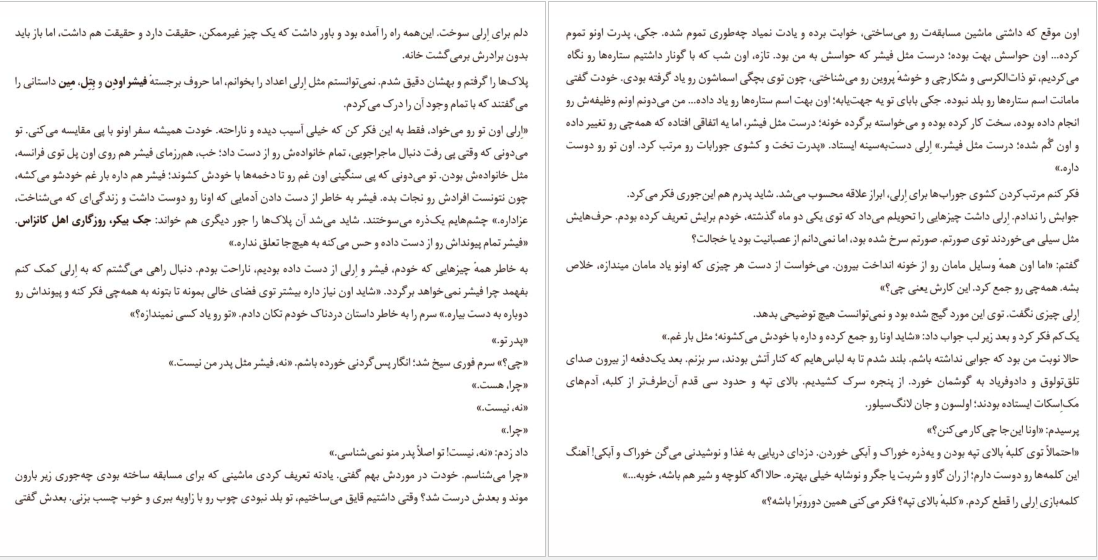 دلم برای اِرلی سوخت. این‌همه راه را آمده بود و باور داشت که یک چیز غیرممکن، حقیقت دارد و حقیقت هم داشت، اما باز باید
بدون برادرش برمی‌گشت خانه.
پلاک‌ها را گرفتم و بهشان دقیق شدم. نمی‌توانستم مثل اِرلی اعداد را بخوانم، اما حروف برجستهٔ فیشر اودِن و بِتِل، مِین داستانی را
می‌گفتند که با تمام وجود آن را درک می‌کردم.
«اِرلی اون تو رو می‌خواد، فقط به این فکر کن که خیلی آسیب دیده و ناراحته. خودت همیشه سفر اونو با پی مقایسه می‌کنی. تو
می‌دونی که وقتی پی رفت دنبال ماجراجویی، تمام خانواده‌ش رو از دست داد؛ خب، هم‌رزمای فیشر هم روی اون پل توی فرانسه،
مثل خانواده‌ش بودن. تو می‌دونی که پی سنگینی اون غم رو تا دخمه‌ها با خودش کشوند؛ فیشر هم داره بار غم خودشو می‌کشه،
چون نتونست افرادش رو نجات بده. فیشر به خاطر از دست دادن آدمایی که اونا رو دوست داشت و زندگی‌ای که می‌شناخت،
عزاداره.» چشم‌هایم یک‌ذره می‌سوختند. شاید می‌شد آن پلاک‌ها را جور دیگری هم خواند: جک بیکر، روزگاری اهل کانزاس.
«فیشر تمام پیونداش رو از دست داده و حس می‌کنه به هیچ‌جا تعلق نداره.»
به خاطر همهٔ چیزهایی که خودم، فیشر و اِرلی از دست داده بودیم، ناراحت بودم. دنبال راهی می‌گشتم که به اِرلی کمک کنم
بفهمد چرا فیشر نمی‌خواهد برگردد. «شاید اون نیاز داره بیشتر توی فضای خالی بمونه تا بتونه به همه‌چی فکر کنه و پیونداش رو
دوباره به دست بیاره.» سرم را به خاطر داستان دردناک خودم تکان دادم. «تو رو یاد کسی نمیندازه؟»
«پدر تو.»
«چی؟» سرم فوری سیخ شد؛ انگار پس‌گردنی خورده باشم. «نه، فیشر مثل پدر من نیست.»
«چرا، هست.»
«نه، نیست.»
«چرا.»
داد زدم: «نه، نیست! تو اصلاً پدر منو نمی‌شناسی.»
«چرا می‌شناسم. خودت در موردش بهم گفتی. یادته تعریف کردی ماشینی که برای مسابقه ساخته بودی چه‌جوری زیر بارون
موند و بعدش درست شد؟ وقتی داشتیم قایق می‌ساختیم، تو بلد نبودی چوب رو با زاویه ببری و خوب چسب بزنی. بعدش گفتی
اون موقع که داشتی ماشین مسابقه‌ت رو می‌ساختی، خوابت برده و یادت نمیاد چه‌طوری تموم شده. جکی، پدرت اونو تموم
کرده... اون حواسش بهت بوده؛ درست مثل فیشر که حواسش به من بود. تازه، اون شب که با گونار داشتیم ستاره‌ها رو نگاه
می‌کردیم، تو ذات‌الکرسی و شکارچی و خوشهٔ پروین رو می‌شناختی، چون توی بچگی اسماشون رو یاد گرفته بودی. خودت گفتی
مامانت اسم ستاره‌ها رو بلد نبوده. جکی بابای تو یه جهت‌یابه؛ اون بهت اسم ستاره‌ها رو یاد داده... من می‌دونم اونم وظیفه‌ش رو
انجام داده بوده، سخت کار کرده بوده و می‌خواسته برگرده خونه؛ درست مثل فیشر، اما یه اتفاقی افتاده که همه‌چی رو تغییر داده
و اون گُم شده؛ درست مثل فیشر.» اِرلی دست‌به‌سینه ایستاد. «پدرت تخت و کشوی جورابات رو مرتب کرد. اون تو رو دوست
داره.»
فکر کنم مرتب‌کردن کشوی جوراب‌ها برای اِرلی، ابراز علاقه محسوب می‌شد. شاید پدرم هم این‌جوری فکر می‌کرد.
جوابش را ندادم. اِرلی داشت چیزهایی را تحویلم می‌داد که توی یکی دو ماه گذشته، خودم برایش تعریف کرده بودم. حرف‌هایش
مثل سیلی می‌خوردند توی صورتم. صورتم سرخ شده بود، اما نمی‌دانم از عصبانیت بود یا خجالت؟
گفتم: «اما اون همهٔ وسایل مامان رو از خونه انداخت بیرون. می‌خواست از دست هر چیزی که اونو یاد مامان میندازه، خلاص
بشه. همه‌چی رو جمع کرد. این کارش یعنی چی؟»
اِرلی چیزی نگفت. توی این مورد گیج شده بود و نمی‌توانست هیچ توضیحی بدهد.
یک‌کم فکر کرد و بعد زیر لب جواب داد: «شاید اونا رو جمع کرده و داره با خودش می‌کشونه؛ مثل بار غم.»
حالا نوبت من بود که جوابی نداشته باشم. بلند شدم تا به لباس‌هایم که کنار آتش بودند، سر بزنم. بعد یک‌دفعه از بیرون صدای
تلق‌تولوق و دادوفریاد به گوشمان خورد. از پنجره سرک کشیدیم. بالای تپه و حدود سی قدم آن‌طرف‌تر از کلبه، آدم‌های
مَک‌اِسکات ایستاده بودند؛ اولسون و جان لانگ‌سیلور.
پرسیدم: «اونا این‌جا چی کار می‌کنن؟»
«احتمالاً توی کلبهٔ بالای تپه بودن و یه‌ذره خوراک و آبکی خوردن. دزدای دریایی به غذا و نوشیدنی می‌گن خوراک و آبکی! آهنگ
این کلمه‌ها رو دوست دارم؛ از ران گاو و شربت یا جگر و نوشابه خیلی بهتره. حالا اگه کلوچه و شیر هم باشه، خوبه...»
کلمه‌بازی اِرلی را قطع کردم. «کلبهٔ بالای تپه؟ فکر می‌کنی همین دوروبَرا باشه؟»